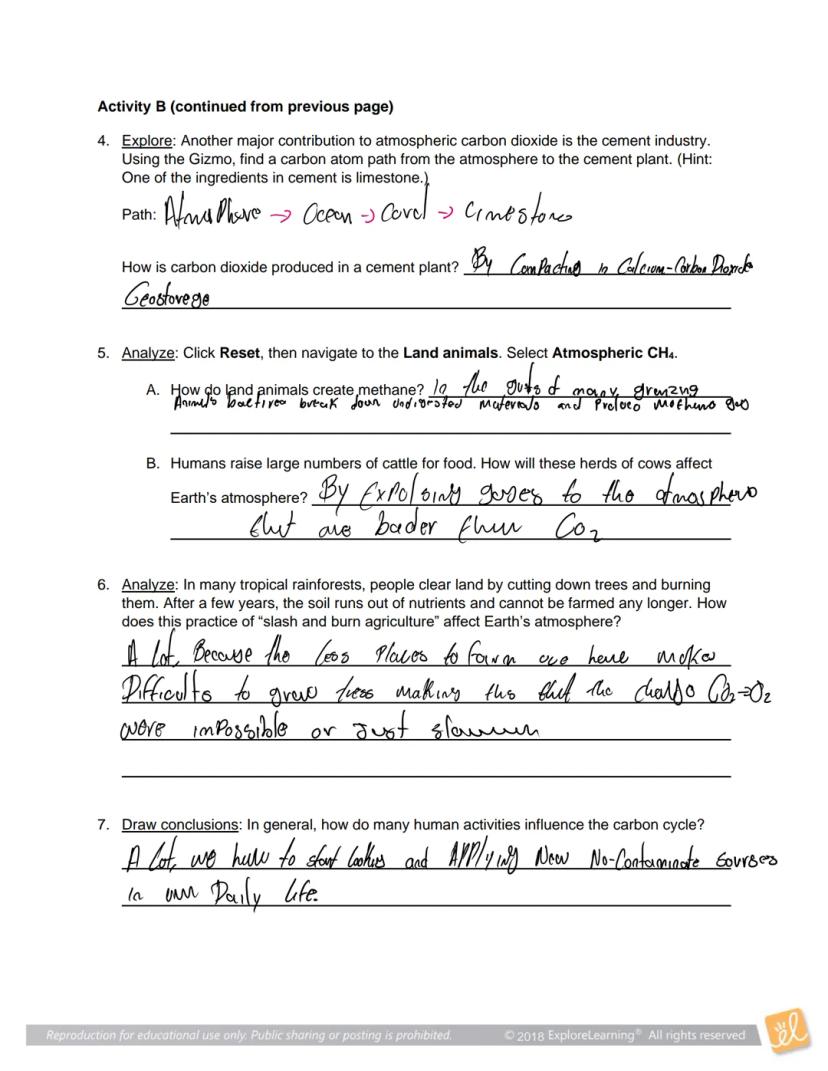 Activity B (continued from previous page)
4. Explore: Another major contribution to atmospheric carbon dioxide is the cement industry.
Using the Gizmo, find a carbon atom path from the atmosphere to the cement plant. (Hint:
One of the ingredients in cement is limestone.)
Path: → Ocean → →
How is carbon dioxide produced in a cement plant? By Compacting in Calcium-Carbon
5. Analyze: Click Reset, then navigate to the Land animals. Select Atmospheric CH₄.
A. How do land animals create methane? In the guts of many
break down and gas
B. Humans raise large numbers of cattle for food. How will these herds of cows affect
Earth's atmosphere? By to the
are bader CO₂
6. Analyze: In many tropical rainforests, people clear land by cutting down trees and burning
them. After a few years, the soil runs out of nutrients and cannot be farmed any longer. How
does this practice of “slash and burn agriculture” affect Earth's atmosphere?
A lot, Because the less Places to farm
to grow making the CO₂→O₂
more imPossible or Just
7. Draw conclusions: In general, how do many human activities influence the carbon cycle?
A lot, we to start and APPlying New No-Contaminate
in our Daily life.
Reproduction for educational use only. Public sharing or posting is prohibited. © 2018 ExploreLearning® All rights reserved
el